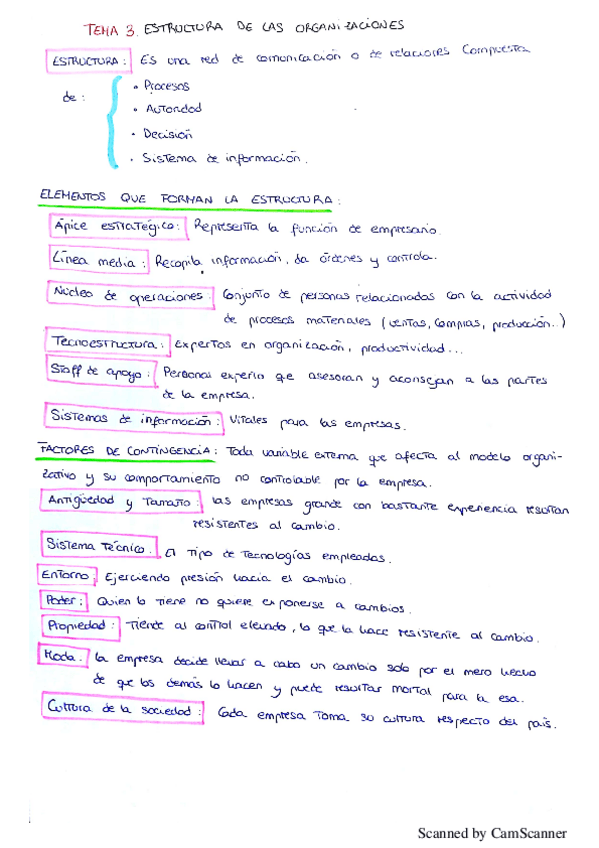 TEMA 3. ESTRUCTURA DE LAS ORGANIZACIONES
ESTRUCTURA: Es una red de comunicación o de relaciones compuesta
de:
• Procesos
• Autoridad
• Decisión
• Sistema de información.
ELEMENTOS QUE FORMAN LA ESTRUCTURA:
Ápice estratégico: Representa la función de empresario.
Línea media: Recopila información, da órdenes y controla.
Núcleo de operaciones: Conjunto de personas relacionadas con la actividad
de procesos materiales (ventas, compras, producción..)
Tecnoestructura: Expertos en organización, productividad...
Staff de apoyo: Personal experto que asesoran y aconsejan a las partes
de la empresa.
Sistemas de información: Vitales para las empresas.
FACTORES DE CONTINGENCIA: Toda variable externa que afecta al modelo organi-
zativo y su comportamiento no controlable por la empresa.
Antigüedad y Tamaño: las empresas grande con bastante experiencia resultan
resistentes al cambio.
Sistema Técnico. El tipo de tecnologías empleadas.
Entorno, Ejerciendo presión hacia el cambio.
Poder: Quien lo tiene no quiere exponerse a cambios.
Propiedad: Tiende al control elevado, lo que la hace resistente al cambio.
Moda. la empresa decide llevar a cabo un cambio solo por el mero hecho
de que los demás lo hacen y puede resultar mortal para la esa.
Cultura de la sociedad: Cada empresa toma su cultura respecto del país.
Scanned by CamScanner